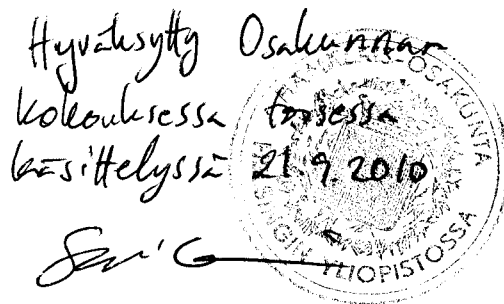 Hyväksytty Osakunnan
kokouksessa toisessa
käsittelyssä 21.9.2010
OSAKUNTA
YLIOPISTOSSA